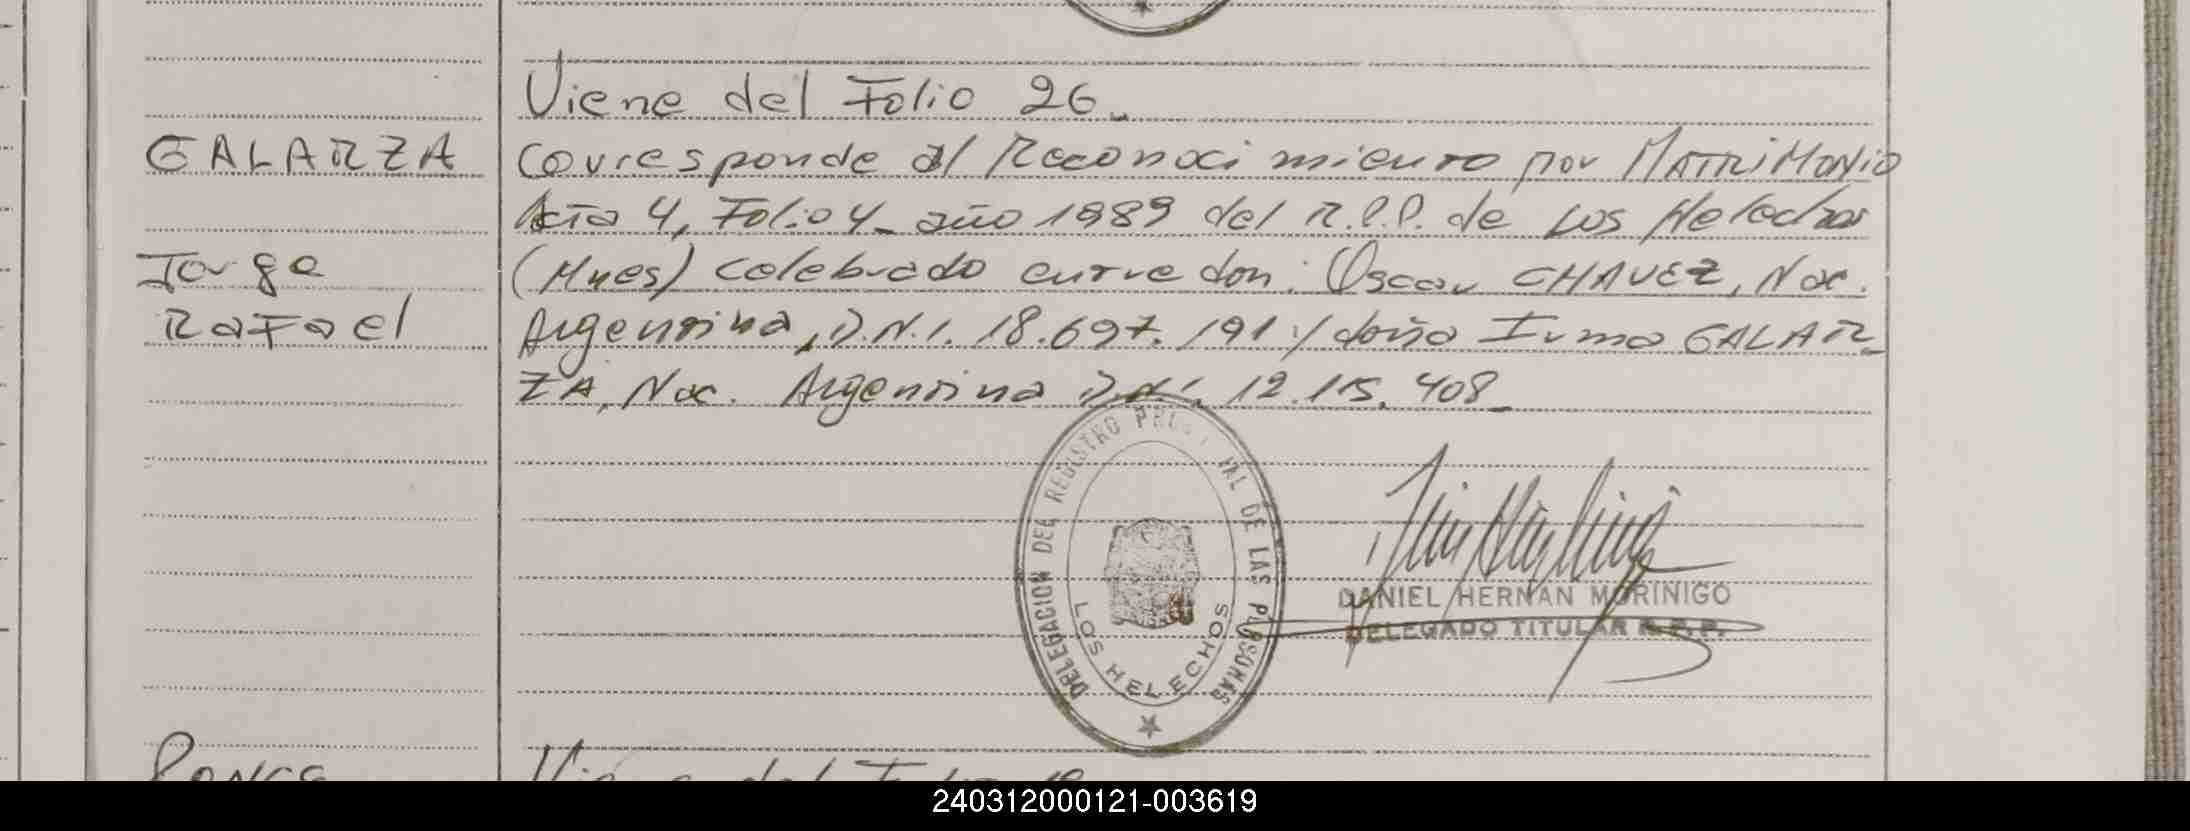 Viene del Folio 26.
GALARZA Corresponde al Reconocimiento por MATRIMONIO
Acta 4, Folio 4 - año 1989 del R.P.P. de Los Helechos
Jorge (Mnes) celebrado entre don: Oscar CHAVEZ, Nac.
Rafael Argentina, D.N.I. 18.697.191 y doña Irma GALAR-
ZA, Nac. Argentina D.N.I. 12.115.408
DELEGACION DEL REGISTRO DE LAS PERSONAS
LOS HELECHOS
DANIEL HERNAN MORINIGO
DELEGADO TITULAR R.P.P.
Viene del Folio
240312000121-003619